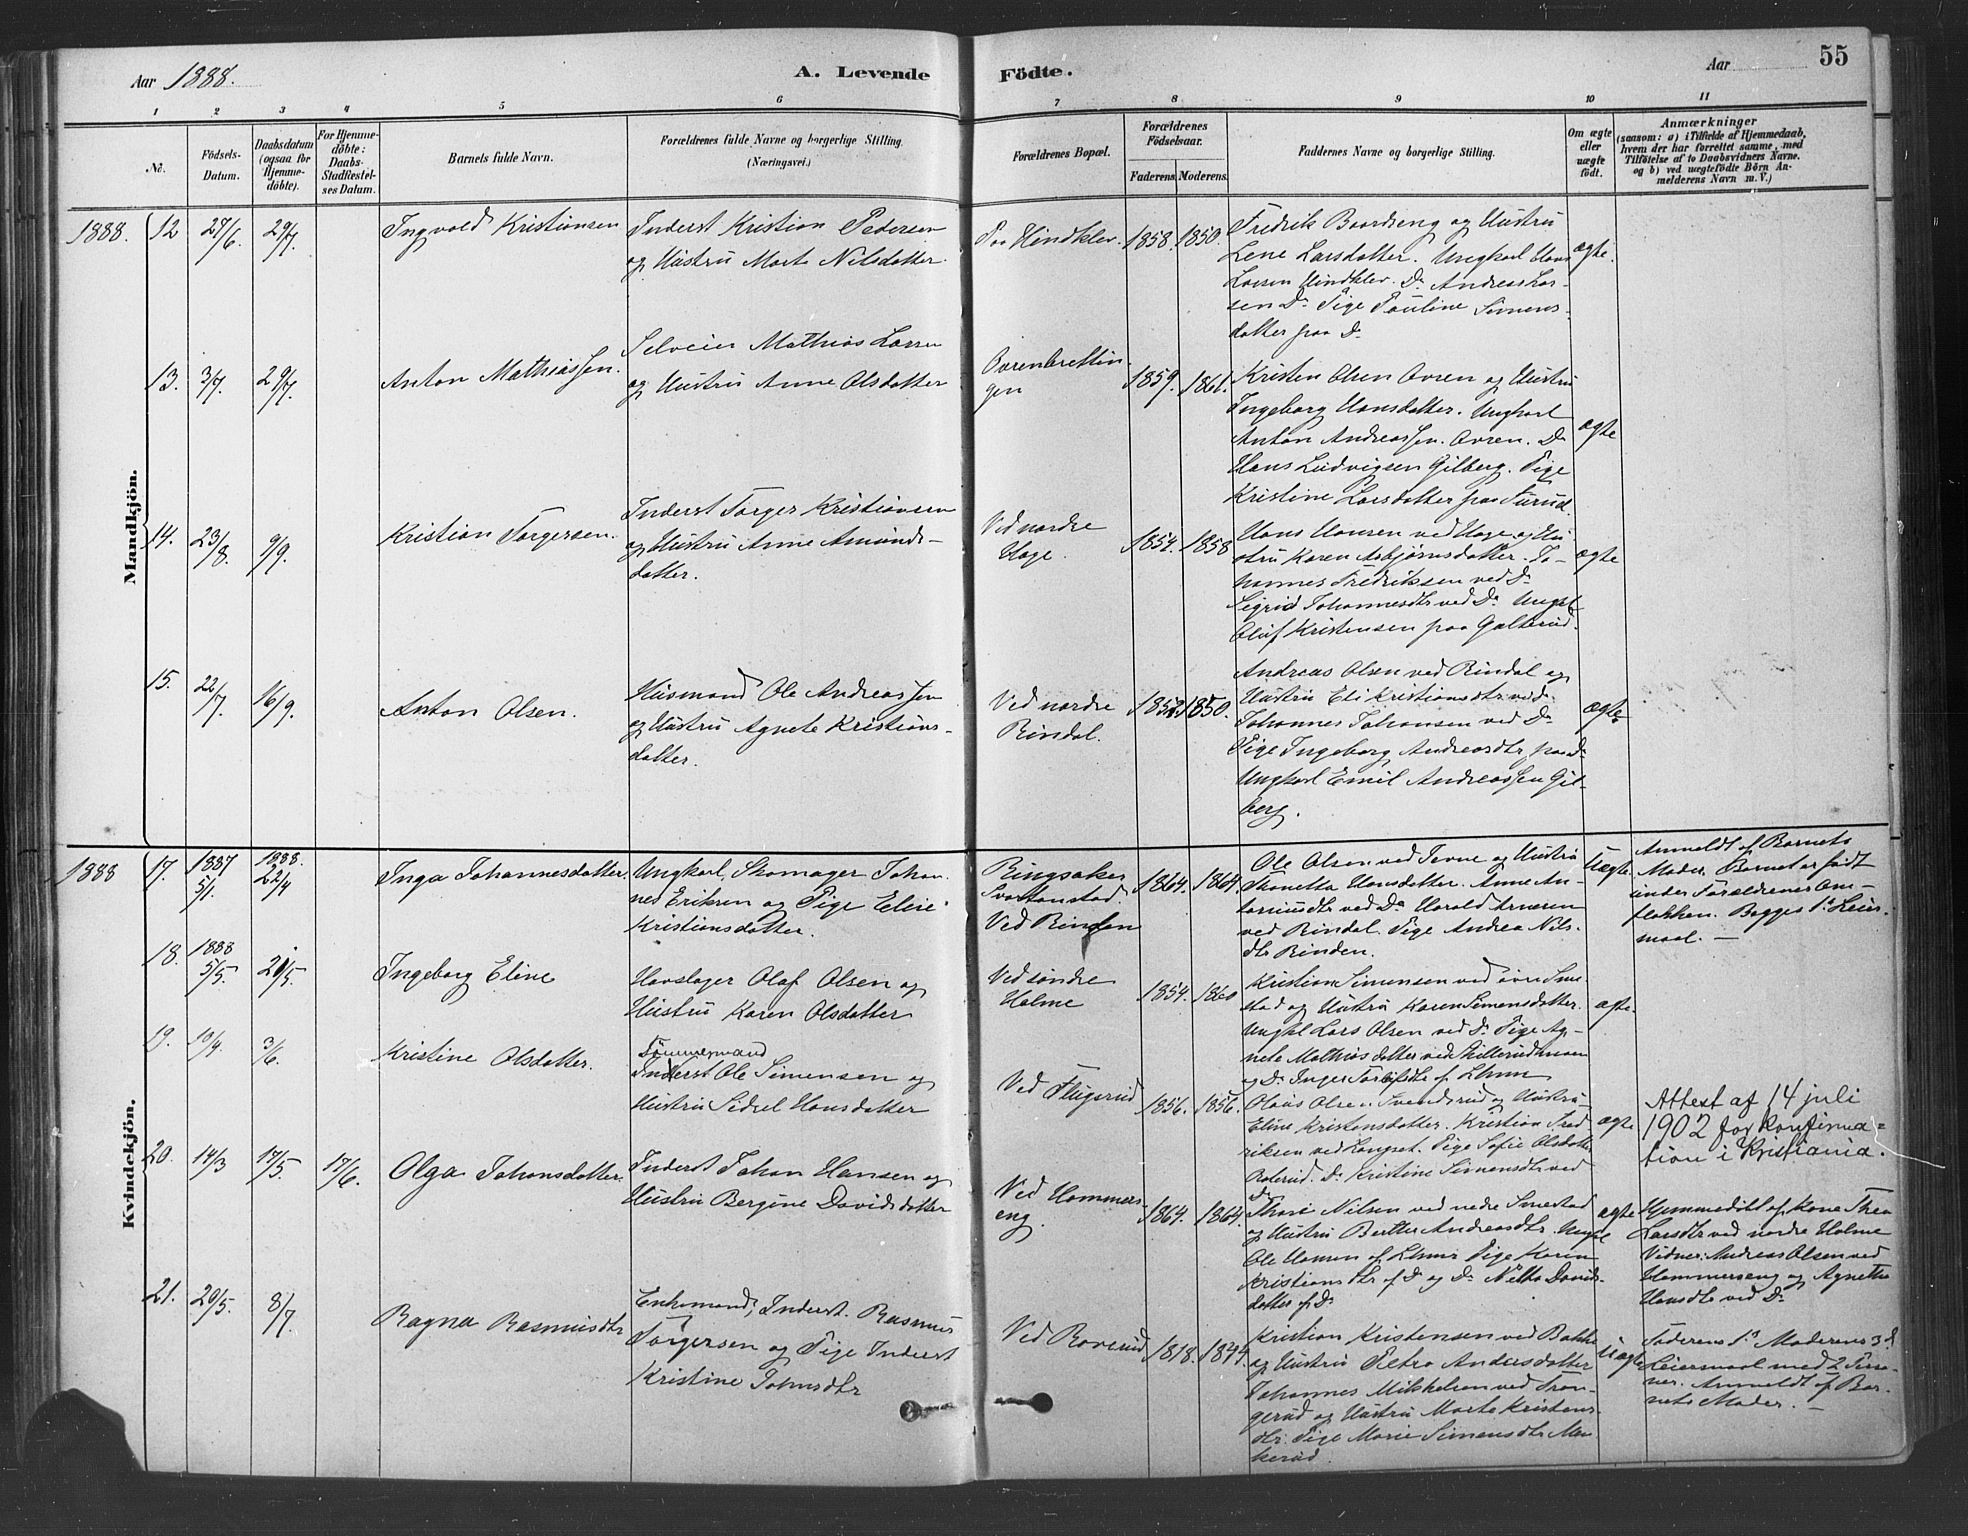 Aar 1888.
A. Levende
Födte.
Aar
55
1 2 3 4 5 6 7 8 9 10 11
No.
Födsels-
Datum.
Daabsdatum
(ogsaa for
Hjemme-
döbte).
For Hjemme-
döbte:
Daabs-
Stadfæstel-
ses Datum.
Barnets fulde Navn.
Forældrenes fulde Navne og borgerlige Stilling.
(Næringsvei.)
Forældrenes Bopæl.
Forældrenes
Födselsaar.
Faderens. Moderens.
Faddernes Navne og borgerlige Stilling.
Om ægte
eller
uægte
födt.
Anmærkninger
(saasom: a) i Tilfælde af Hjemmedaab,
hvem der har forrettet samme, med
Tilföielse af to Daabsvidners Navne.
og b) ved uægtefödte Börn An-
melderens Navn m. V.)
Mandkjön.
1888. 12 27/6. 29/7.
Ingvald Kristiansen
Inderst Kristian Pedersen
og Hustru Marte Nilsdatter.
Paa Hindklev. 1858. 1850.
Fredrik Baardseng og Hustru
Lene Larsdatter. Ungkarl Hans
Larsen Hindklev. Do Andreas Lar-
sen Do Pige Pauline Simens-
datter paa Do
ægte.
13. 3/7. 29/7.
Anton Mathiassen.
Selveier Mathias Larsen
og Hustru Anne Olsdatter
gen
1859. 1861.
Kristen Olsen Ovren og Hustru
Ingeborg Hansdatter. Ungkarl
Anton Andreassen Ovren. Do
Hans Ludvigsen Gilberg. Pige
Kristine Larsdatter paa Furud.
ægte
14. 23/8. 9/9.
Kristian Torgersen.
Inderst Torger Kristiansen
og Hustru Anne Amunds-
datter.
Ved nordre
Hage.
1854. 1858
Hans Hansen ved Hage og Hu-
stru Karen Asbjørnsdatter. Jo-
hannes Fredriksen ved Do
Sigrid Johannesdtr ved Do Ungkl
Oluf Kristensen paa Galterud.
ægte
15. 22/7. 16/9.
Anton Olsen.
Husmand Ole Andreassen
og Hustru Agnete Kristians-
datter.
Ved nordre
Rindal.
1850.
Andreas Olsen ved Rindal og
Hustru Eli Kristiansdtr ved Do
Johannes Johansen ved Do
Pige Ingeborg Andreasdtr paa Do
Ungkarl Emil Andreassen Gil-
berg.
ægte
Kvindekjön.
1888 17. 1887 5/1. 1888. 22/4
Inga Johannesdatter.
Ungkarl, Skomager Johan-
nes Eriksen og Pige Eline
Kristiansdatter.
Ringsaker
Svartenstad.
Ved Rinden
1864. 1864.
Ole Olsen ved Tevne og Hustru
Thonetta Hansdatter. Anne An-
toniusdtr ved Do Harald Arnesen
ved Rindal. Pige Andrea Nils-
dtr Rinden.
Uægte
Anmeldt af Barnets
Moder. Barnet er født
under Forældrenes Om-
flakken. Begges 1s Leier-
maal. —
18. 1888 5/5.
Ingeborg Eline
Hovslager Olaf Olsen og
Hustru Karen Olsdatter
Ved søndre
Holme
1854. 1860
Kristian Simensen ved øvre Sme-
stad og Hustru Karen Simensdatter.
Ungkl Lars Olsen ved Do Pige Ag-
nete Mathiasdatter ved Skillerudhuan
ægte.
19. 10/4. 3/6.
Kristine Olsdatter.
Tømmermand
Inderst Ole Simensen og
Hustru Sidsel Hansdatter
Ved Flugsrud
1856. 1856.
Olaus Olsen Svendsrud og Hustru
Eline Kristensdatter. Kristian Fred-
riksen ved Longset. Pige Sofie Olsdatter
Roterud. Do Kristine Simensdtr ved
Do
ægte
Attest af 14 juli
1902 for konfirma-
tion i Kristiania.
20. 14/3 17/5. 17/6.
Olga Johansdatter.
Inderst Johan Hansen og
Hustru Bergine Davidsdatter
Ved Hommers-
eng.
1864. 1864.
Thore Nilsen ved nedre Smestad
og Hustru Berthe Andreasdtr. Ungkl
Ole Hansen af Ehnn Pige Karen
Kristiansdtr af Do og Do Netta Davids-
datter af Do
ægte
Hjemmedöbt af Kone Thea
Larsdtr ved nordre Holme
Vidner: Andreas Olsen ved
Hommerseng og Agnethe
Hansdtr ved Do
21. 20/5. 8/7.
Ragna Rasmusdtr
Enkemand, Inderst. Rasmus
Torgersen og Pige Inderst
Kristine Johnsdtr
Ved Roverud
1818. 1844.
Kristian Kristensen ved Bakke
og Hustru Petra Andersdatter
Johannes Mikkelsen ved Tran-
gerud og Hustru Marte Kristens-
dtr. Pige Marie Simensdtr Men-
kerud.
Uægte
Faderens 1s Moderens 3d
Leiermaal med 2 Perso-
ner. Anmeldt af Bar-
nets Moder. —